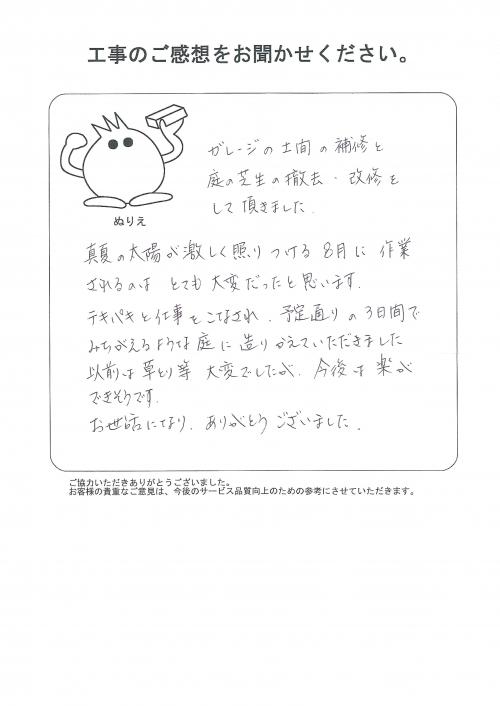 工事のご感想をお聞かせください。
ガレージの土間の補修と
庭の芝生の撤去・改修を
して頂きました.
ぬりえ
真夏の太陽が激しく照りつける8月に作業
されるのは とても大変だったと思います.
テキパキと仕事をこなされ、予定通りの3日間で
みちがえるような庭に造りかえていただきました
以前は草とり等 大変でしたが、今後は楽が
できそうです.
お世話になり、ありがとうございました.
ご協力いただきありがとうございました。
お客様の貴重なご意見は、今後のサービス品質向上のための参考にさせていただきます。